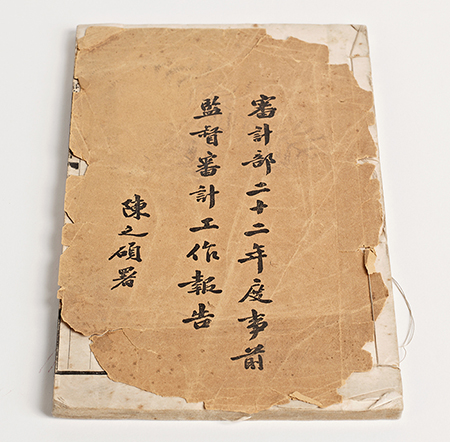 審計部二十二年度事前
監督審計工作報告
陳之碩署